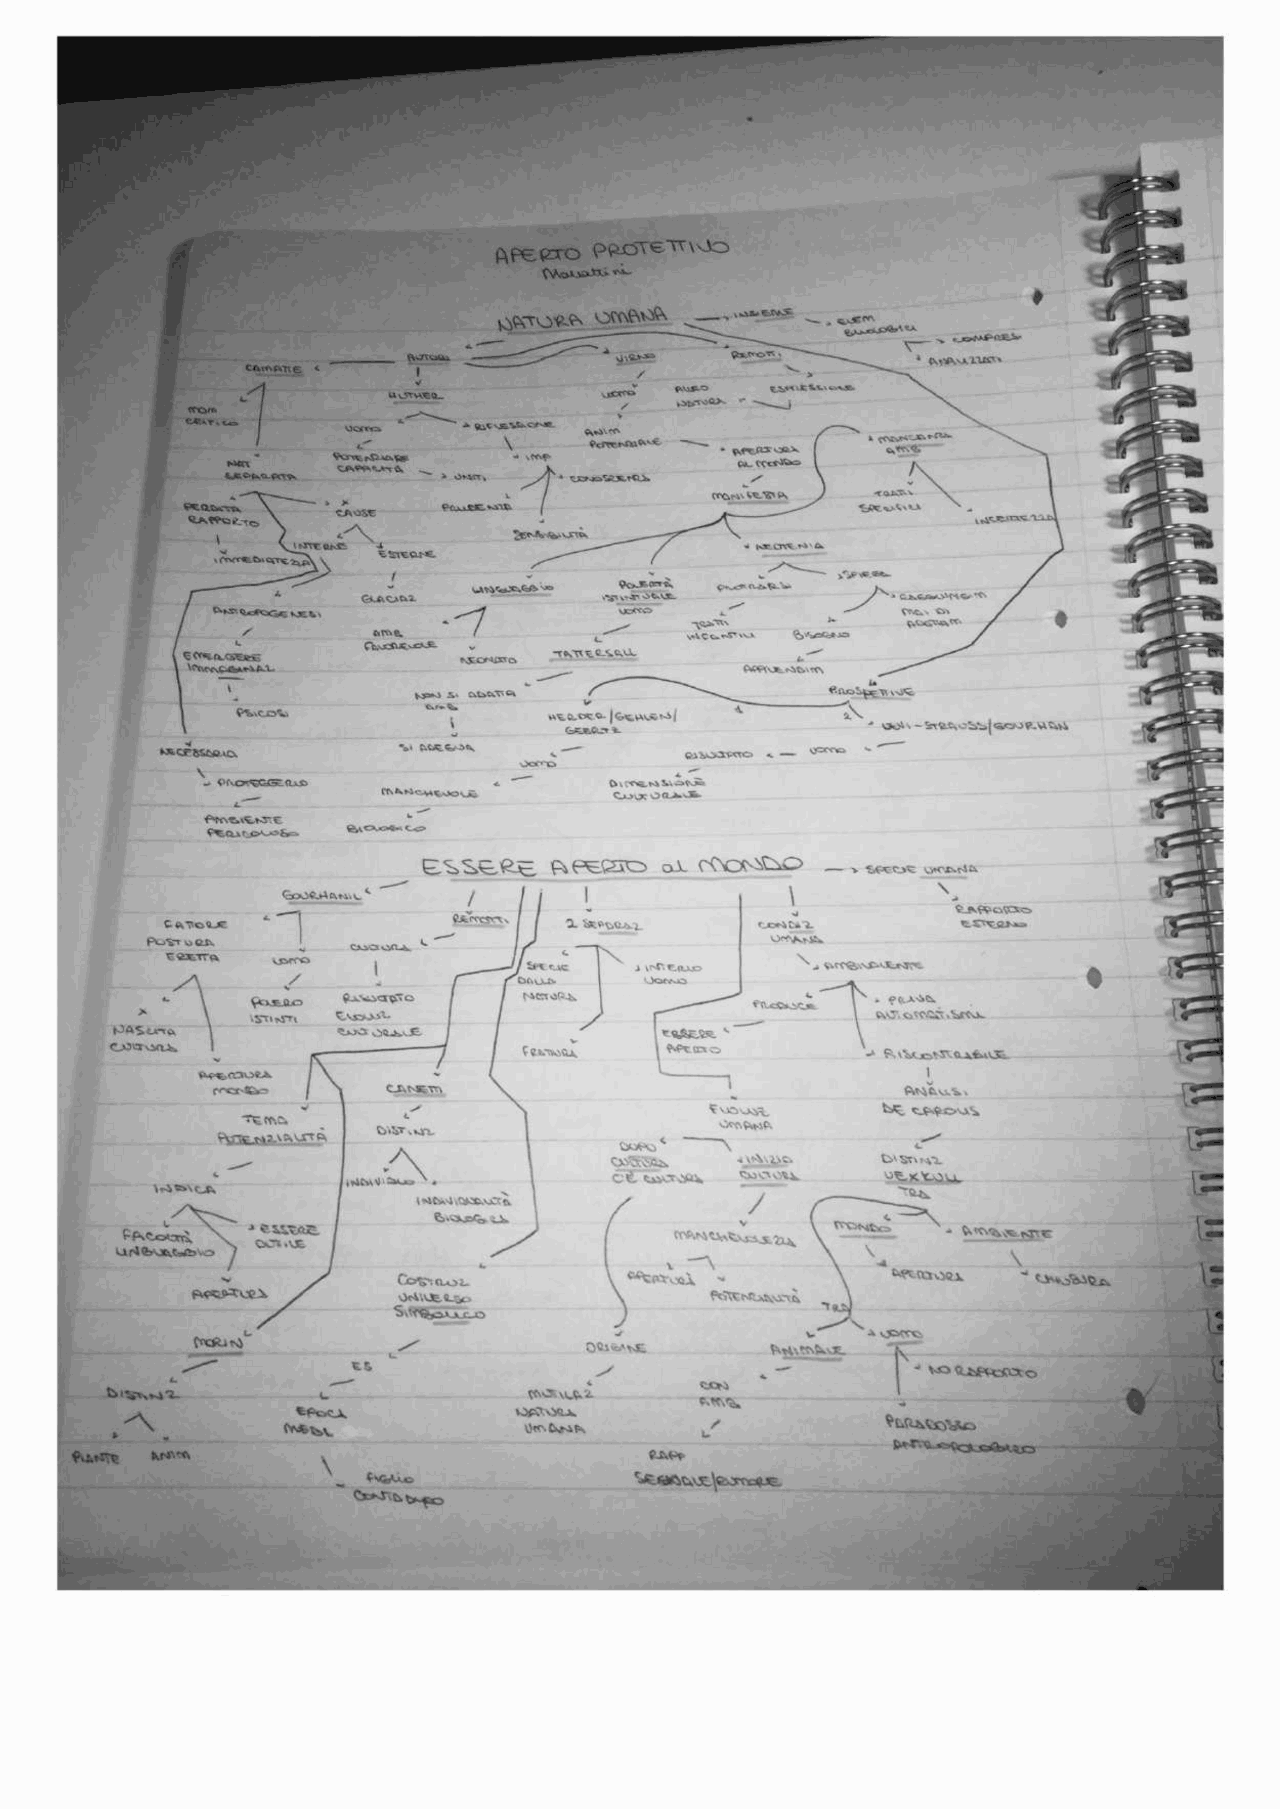 APERTO PROTETTIVO
NATURA UMANA
INSIEME
ELEM
BIOLOGICI
COMPRES
ANALIZZATI
AUTORI
VIRNO
REMOTTI
CAIMATIE
HUTHER
UOMO
ALLEO
NATURA
ESPRESSIONE
MOM
CRITICO
UOMO
RIFLESSIONE
ANIM
POTENZIALE
APERTURA
AL MONDO
MANCANZA
AMB
NAT
SEPARATA
POTENZIARE
CAPACITÀ
UNITI
IMP
CONOSCENZA
MANIFESTA
TRATTI
SPECIFICI
INCERTEZZA
PERDITA
RAPPORTO
CAUSE
PRUDENZA
SENSIBILITÀ
IMMEDIATEZZA
INTERNE
ESTERNE
NEOTENIA
ANTROPOGENESI
GLACIAZ
LINGUAGGIO
POVERTÀ
ISTINTUALE
UOMO
PROTRARSI
SPIEGA
TRATTI
INFANTILI
BISOGNO
MAI DI
EMERGERE
IMMAGINAZ
AMB
FAVOREVOLE
NEONATO
TATTERSALL
APPRENDIM
PSICOSI
NON SI ADATTA
AMB
HERDER/GEHLEN/
GEERTZ
1
PROSPETTIVE
2
LEVI-STRAUSS/GOURHAN
NECESSARIA
SI ADEGUA
UOMO
RISULTATO
UOMO
PROTEGGERLO
MANCHEVOLE
DIMENSIONE
CULTURALE
AMBIENTE
PERICOLOSO
BIOLOGICO
ESSERE APERTO al MONDO
SPECIE UMANA
GOURHANIL
REMOTTI
2 SEPARAZ
CONDIZ
UMANA
RAPPORTO
ESTERNO
FATTORE
POSTURA
ERETTA
UOMO
CULTURA
SPECIE
DALLA
NATURA
INTERNO
UOMO
AMBIVALENTE
NASCITA
CULTURA
POVERO
ISTINTI
RISULTATO
EVOLUZ
CULTURALE
FRATTURA
PRODUCE
ESSERE
APERTO
PRIVA
AUTOMATISMI
RISCONTRABILE
APERTURA
MONDO
CANETTI
EVOLUZ
UMANA
ANALISI
DE CAROLIS
TEMA
POTENZIALITÀ
DISTINZ
DOPO
CULTURA
C'È CULTURA
INIZIO
CULTURA
DISTINZ
UEXKULL
TRA
INDICA
INDIVIDUO
INDIVIDUALITÀ
BIOLOGICA
FACOLTÀ
LINGUAGGIO
ESSERE
DUTTILE
MANCHEVOLEZZA
MONDO
AMBIENTE
APERTURA
COSTRUZ
UNIVERSO
SIMBOLICO
APERTURA
POTENZIALITÀ
APERTURA
CHIUSURA
TRA
MORIN
ES
ORIGINE
ANIMALE
UOMO
DISTINZ
EPOCA
MEDI.
MUTILAZ
NATURA
UMANA
CON
AMB
NO RAPPORTO
PIANTE
ANIM
FIGLIO
CONTADINO
RAPP
SEGNALE/RUMORE
PARADOSSO
ANTROPOLOGICO